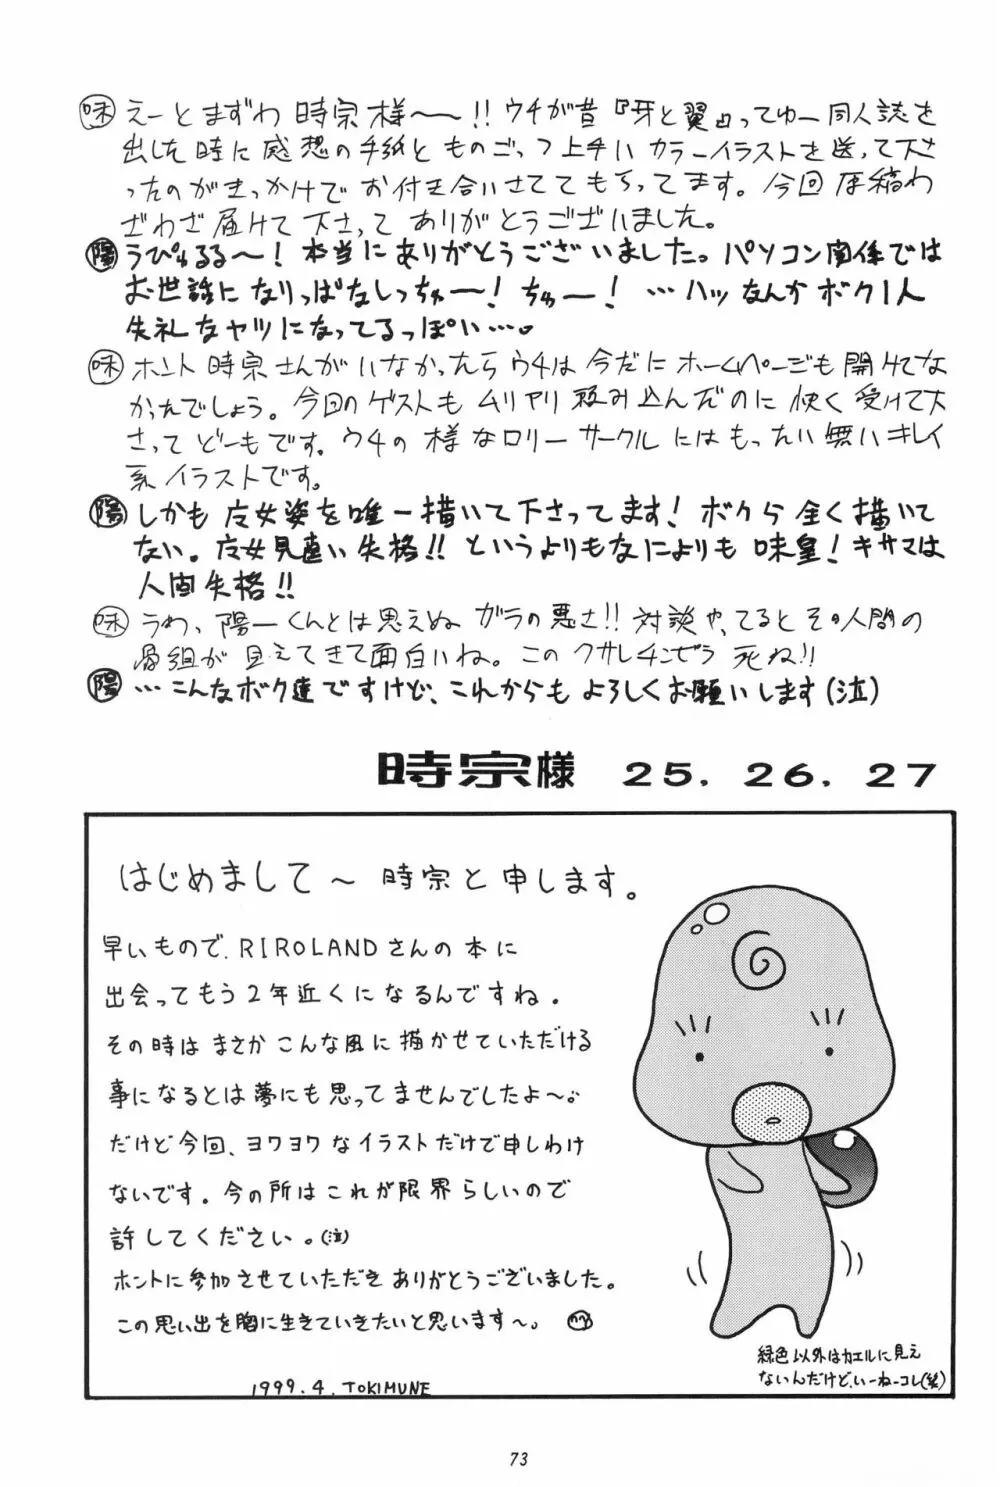 味 えーとまずわ 時宗様〜〜!! ウチが昔『牙と翼』ってゆー同人誌を
出した時に感想の手紙とものごっつ上手いカラーイラストを送って下さ
ったのがきっかけでお付き合いさせてもらってます。今回原稿わ
ざわざ届けて下さって ありがとうございました。
陽 うぴゃるる〜! 本当にありがとうございました。パソコン関係では
お世話になりっぱなしっちゅー! ちゅー! …ハッ なんかボク1人
失礼なヤツになってるっぽい…。
味 ホント時宗さんがいなかったらウチは今だにホームページも開けてな
かったでしょう。今回のゲストもムリヤリ頼み込んだのに快く受けて下
さってどーもです。ウチの様なロリーサークルにはもったい無いキレイ
系イラストです。
陽 しかも 皮女姿を唯一描いて下さってます! ボクら全く描いて
ない。皮女見直い失格!! というよりもなによりも 味皇! キサマは
人間失格!!
味 うわ、陽一くんとは思えぬ ガラの悪さ!! 対談や、てるとその人間の
骨組が見えてきて面白いね。このクサレチンピラ 死ね!!
陽 …こんなボク達ですけど、これからもよろしくお願いします(泣)
時宗様 25. 26. 27
はじめまして〜 時宗と申します。
早いもので、RIROLANDさんの本に
出会ってもう2年近くになるんですね。
その時はまさかこんな風に描かせていただける
事になるとは夢にも思ってませんでしたよ〜。
だけど今回、ヨワヨワなイラストだけで申しわけ
ないです。今の所はこれが限界らしいので
許してください。(泣)
ホントに参加させていただきありがとうございました。
この思い出を胸に生きていきたいと思います〜。
1999.4. TOKIMUNE
緑色以外はカエルに見え
ないんだけど、いーねーコレ(笑)
73